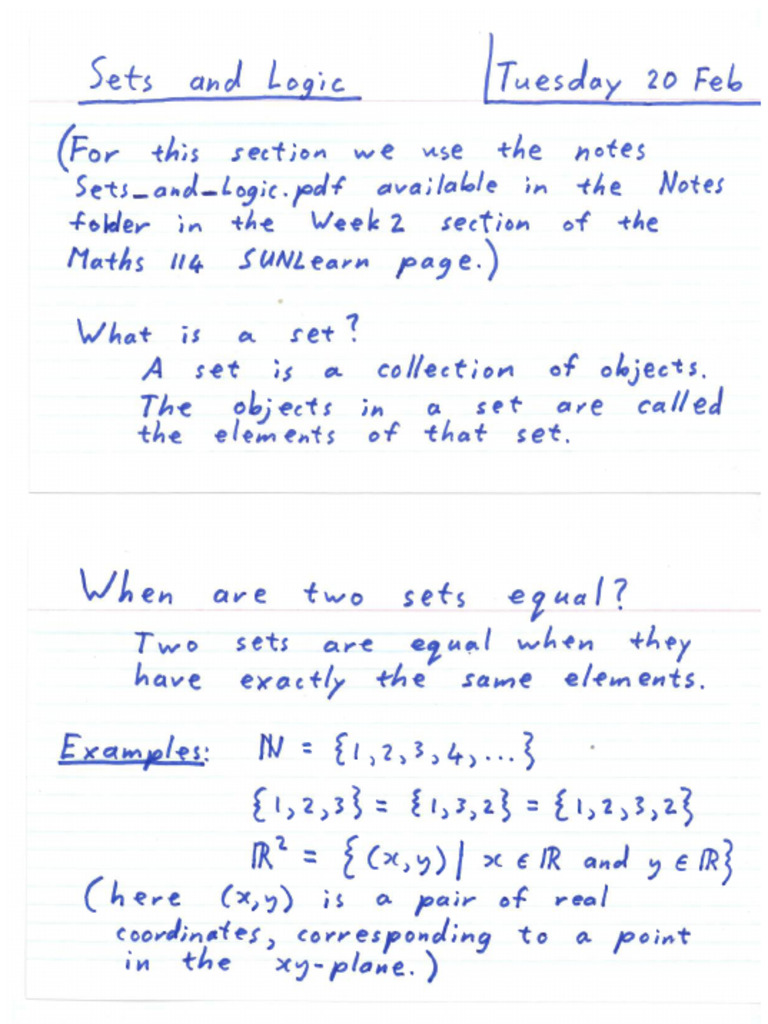 Sets and Logic
Tuesday 20 Feb
(For this section we use the notes
Sets_and_Logic.pdf available in the Notes
folder in the Week 2 section of the
Maths 114 SUNLearn page.)
What is a set?
A set is a collection of objects.
The objects in a set are called
the elements of that set.
When are two sets equal?
Two sets are equal when they
have exactly the same elements.
Examples: ℕ = {1,2,3,4,...}
{1,2,3} = {1,3,2} = {1,2,3,2}
ℝ² = {(x,y) | x ∈ ℝ and y ∈ ℝ}
(here (x,y) is a pair of real
coordinates, corresponding to a point
in the xy-plane.)